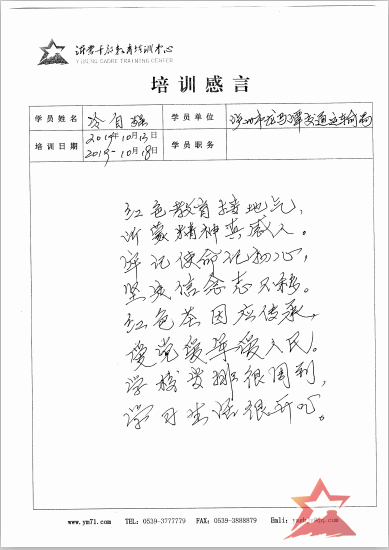 沂蒙干部教育培训中心
YIMENG CADRE TRAINING CENTER
培训感言
学员姓名 冷自强 学员单位 泸州市龙马潭交通运输局
培训日期 2019年10月13日 2019-10月18日 学员职务
红色教育接地气，
沂蒙精神真感人。
牢记使命记初心，
坚定信念志不移。
红色基因应传承，
爱党爱军爱人民。
学校安排很周到，
学习生活很开心。
www.ym71.com TEL: 0539-3777779 FAX: 0539-3888879